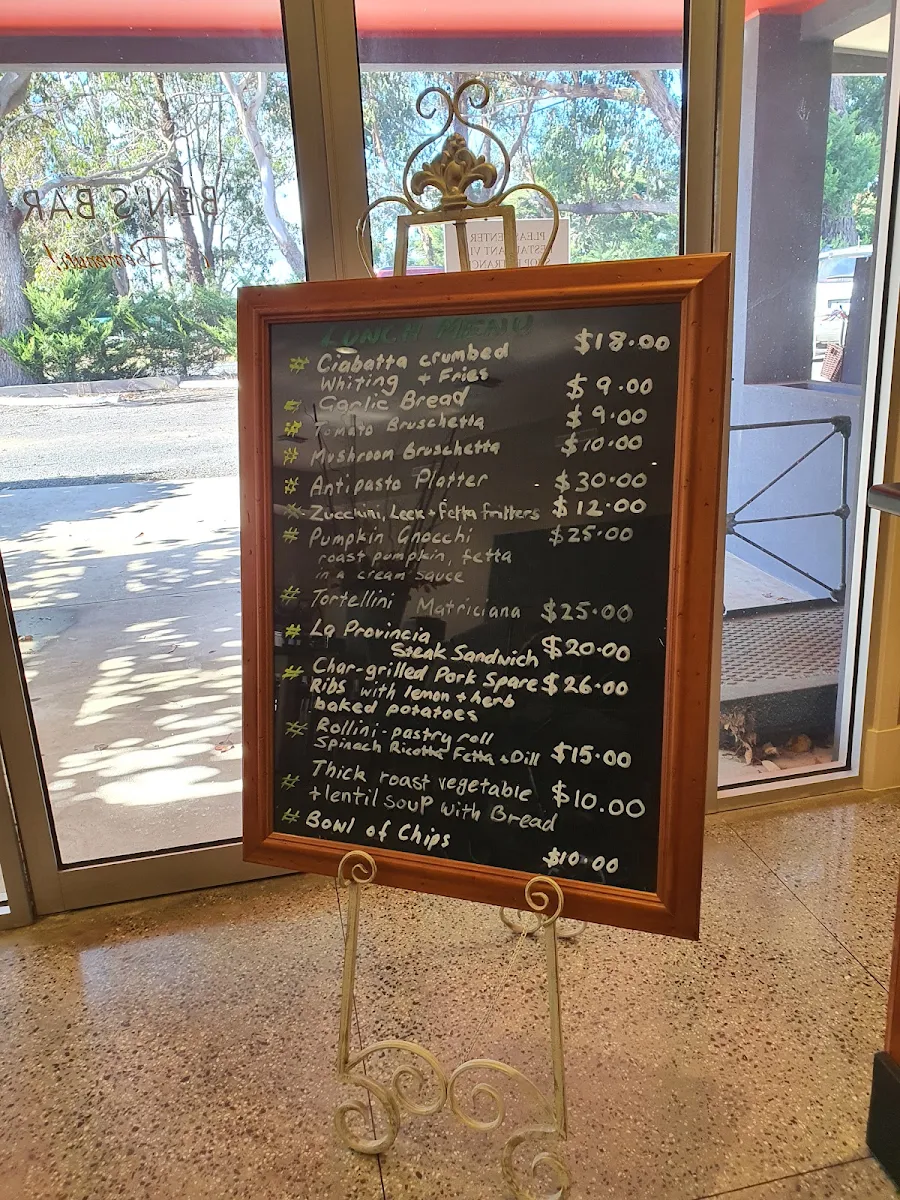 BEN'S BAR
LUNCH MENU
# Ciabatta crumbed $18.00
Whiting + Fries
# Garlic Bread $9.00
# Tomato Bruschetta $9.00
# Mushroom Bruschetta $10.00
# Antipasto Platter $30.00
# Zucchini, Leek + fetta fritters $12.00
# Pumpkin Gnocchi $25.00
roast pumpkin, fetta
in a cream sauce
# Tortellini Matriciana $25.00
# La Provincia
Steak Sandwich $20.00
# Char-grilled Pork Spare $26.00
Ribs with lemon + herb
baked potatoes
# Rollini - pastry roll
Spinach Ricotta Fetta + Dill $15.00
# Thick roast vegetable $10.00
+ lentil soup with Bread
# Bowl of Chips $10.00